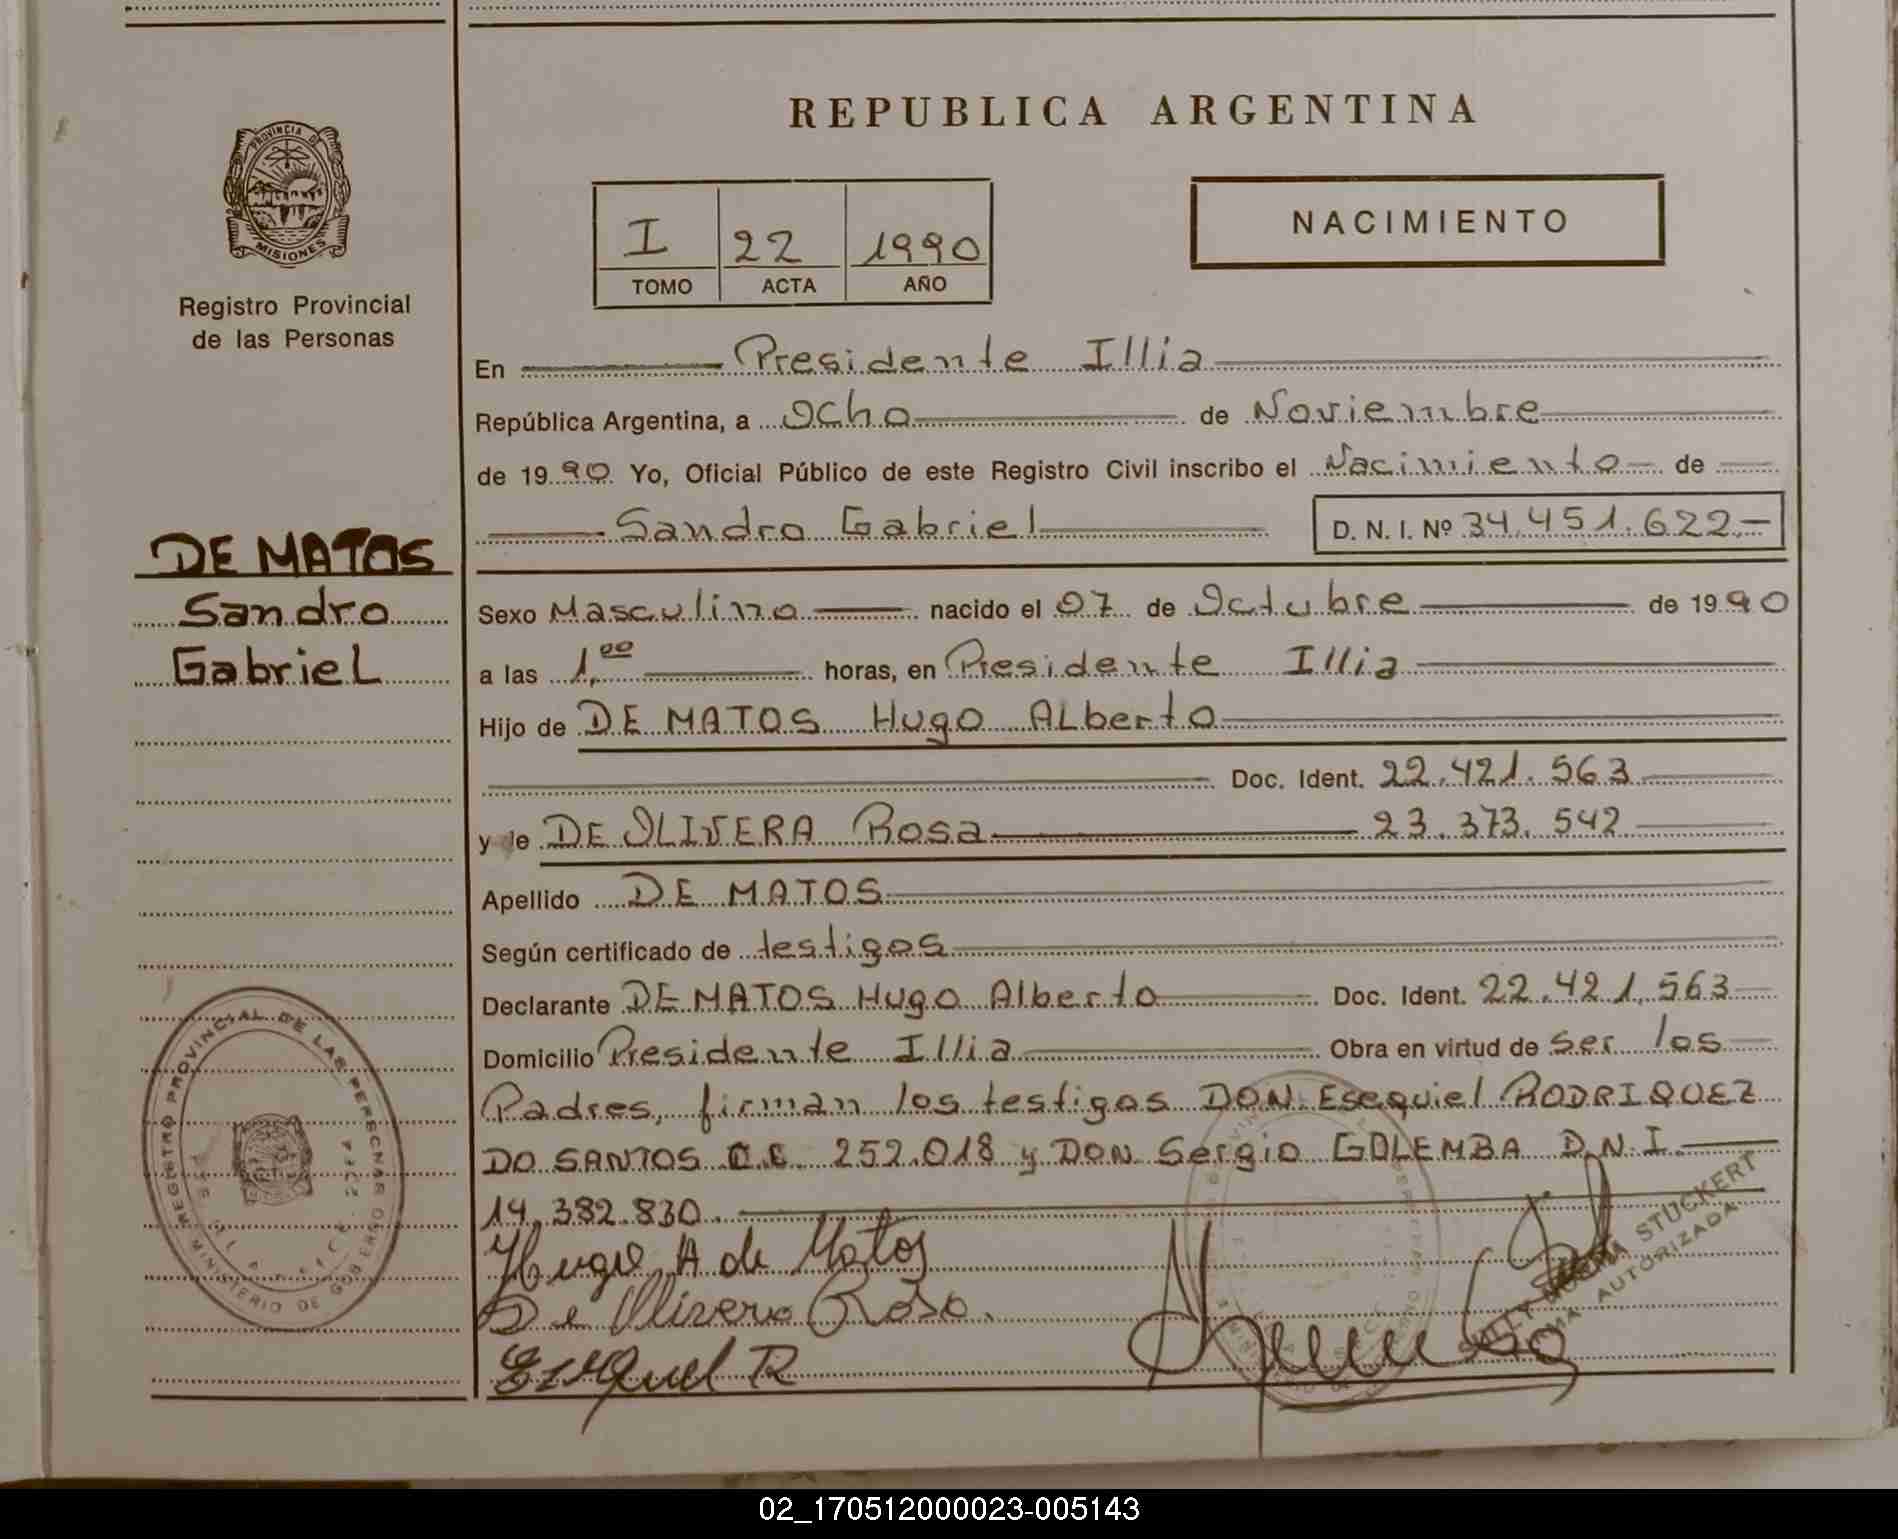 REPUBLICA ARGENTINA
PROVINCIA D
MISIONES
Registro Provincial
de las Personas
I 22 1990
TOMO ACTA AÑO
NACIMIENTO
En Presidente Illia
República Argentina, a Ocho de Noviembre
de 1990 Yo, Oficial Público de este Registro Civil inscribo el Nacimiento de
Sandro Gabriel D. N. I. Nº 34.451.622.-
DE MATOS
Sandro
Gabriel
Sexo Masculino nacido el 07 de Octubre de 1990
a las 1,00 horas, en Presidente Illia
Hijo de DE MATOS Hugo ALberto
Doc. Ident. 22.421.563
y de DE OLIVERA Rosa 23.373.542
Apellido DE MATOS
Según certificado de testigos
Declarante DE MATOS Hugo Alberto Doc. Ident. 22.421.563
Domicilio Presidente Illia Obra en virtud de ser los
Padres, firman los testigos DON Esequiel RODRIQUEZ
DO SANTOS C.C. 252.018 y DON Sergio GOLEMBA D.N.I.
14.382.830.
Hugo A de Matos
De Olivera Rosa.
REGISTRO PROVINCIAL DE LAS PERSONAS
MINISTERIO DE GOBIERNO
STUCKERT
FIRMA AUTORIZADA
02_170512000023-005143